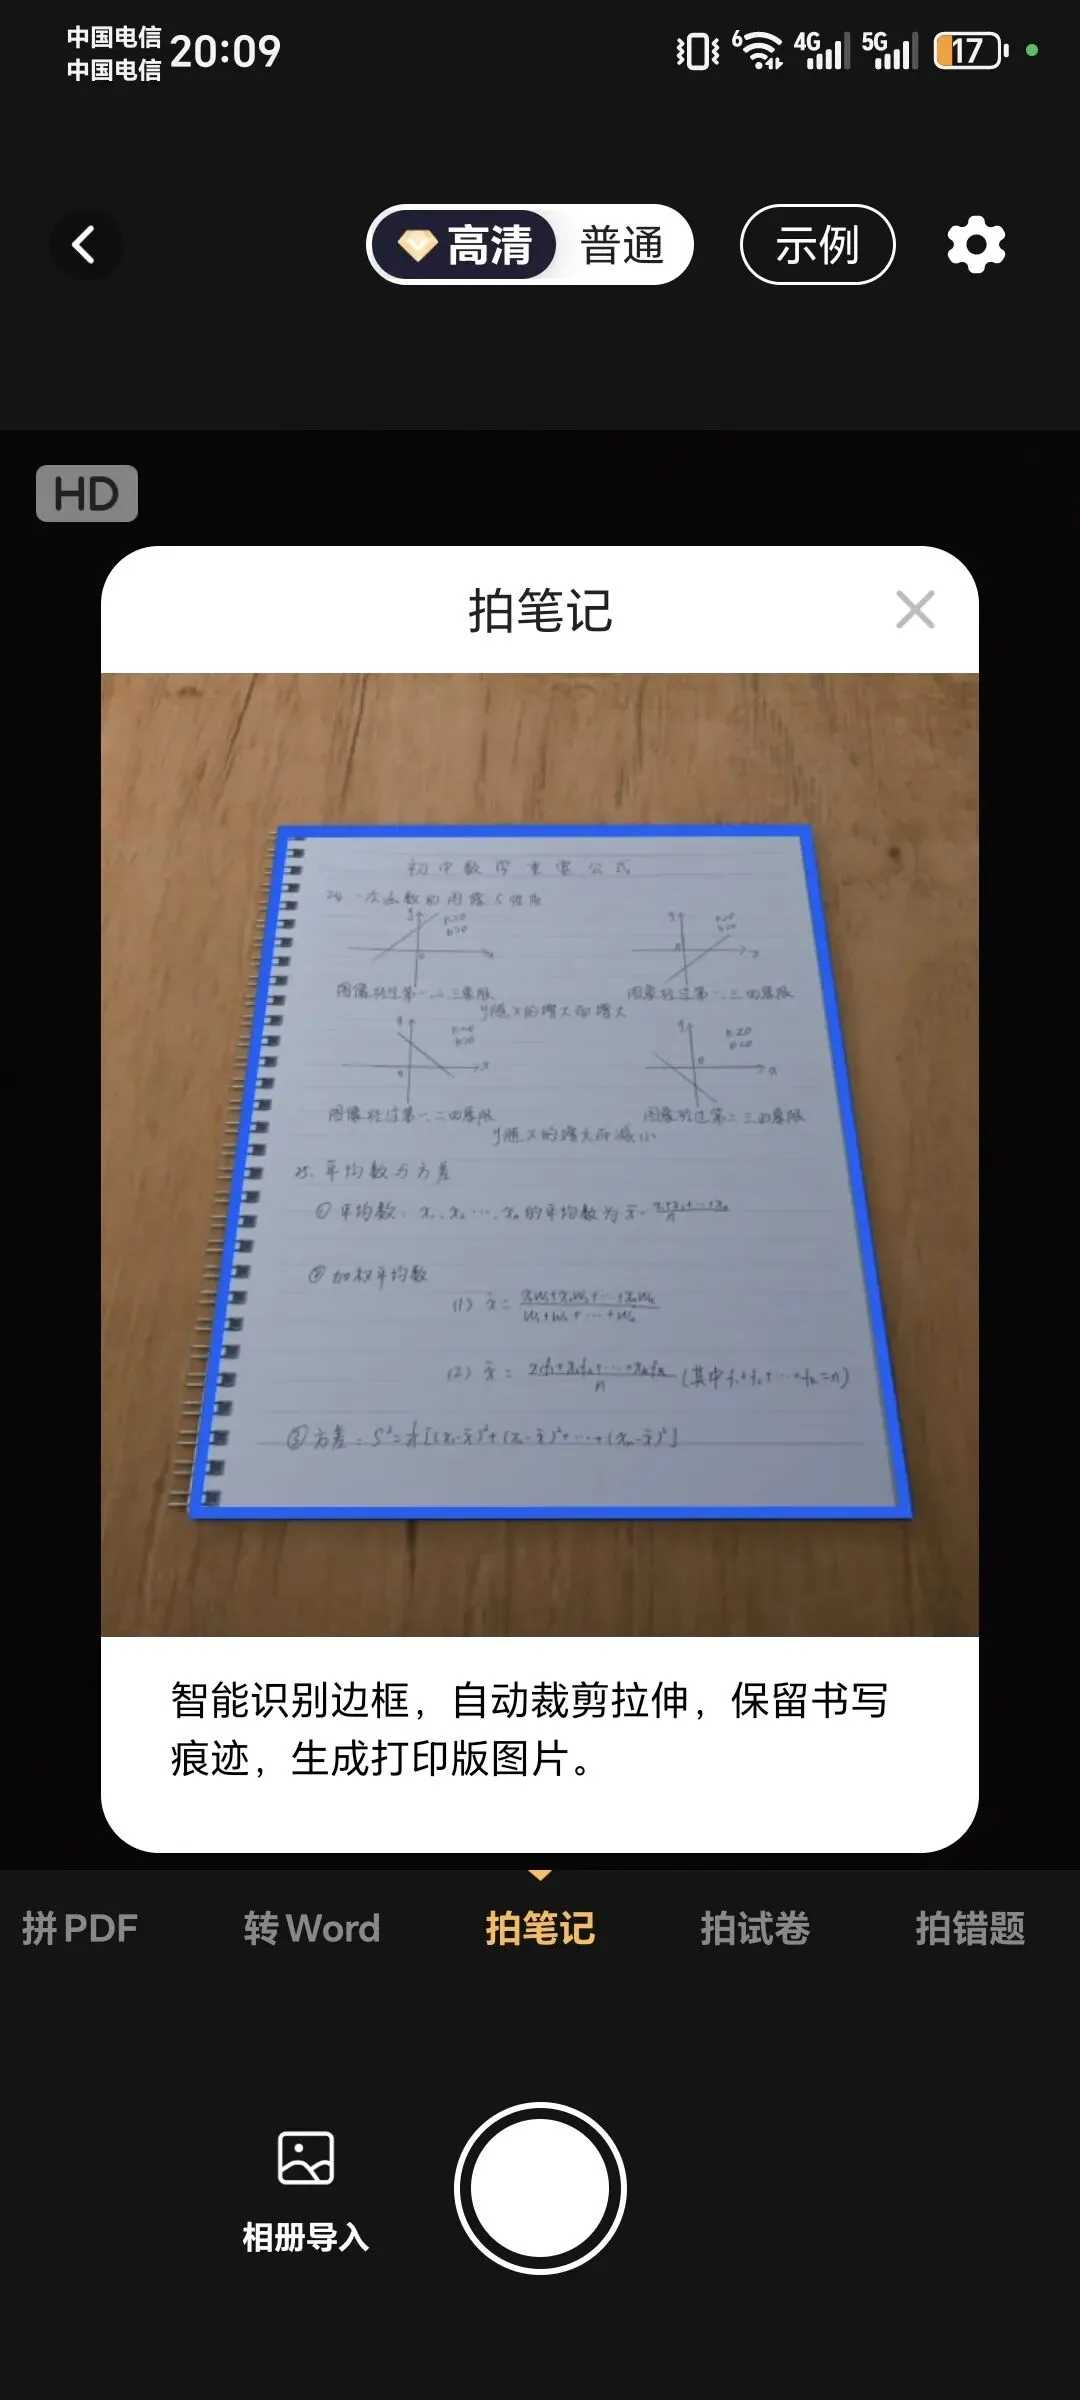 中国电信
中国电信
20:09
6
4G
5G
17
高清
普通
示例
HD
拍笔记
初中数学重要公式
24 一次函数的图像与性质
y
k>0
b>0
o
x
y
k>0
o
x
图像经过第一、二、三象限
图象经过第一、三、四象限
y随x的增大而增大
y
o
x
y
o
x
图像经过第一、二、四象限
图象经过第二、三、四象限
y随x的增大而减小
25. 平均数与方差
① 平均数: x₁、x₂ …, xₙ的平均数为
② 加权平均数
(1) x̄ = x₁w₁+x₂w₂+…+xₙwₙ / w₁+w₂+…+wₙ
(2) x̄ = x₁f₁+x₂f₂+…+xₖfₖ / n (其中f₁+f₂+…+fₖ=n)
③ 方差: S²=1/n[(x₁-x̄)²+(x₂-x̄)²+…+(xₙ-x̄)²]
智能识别边框，自动裁剪拉伸，保留书写
痕迹，生成打印版图片。
拼PDF
转Word
拍笔记
拍试卷
拍错题
相册导入